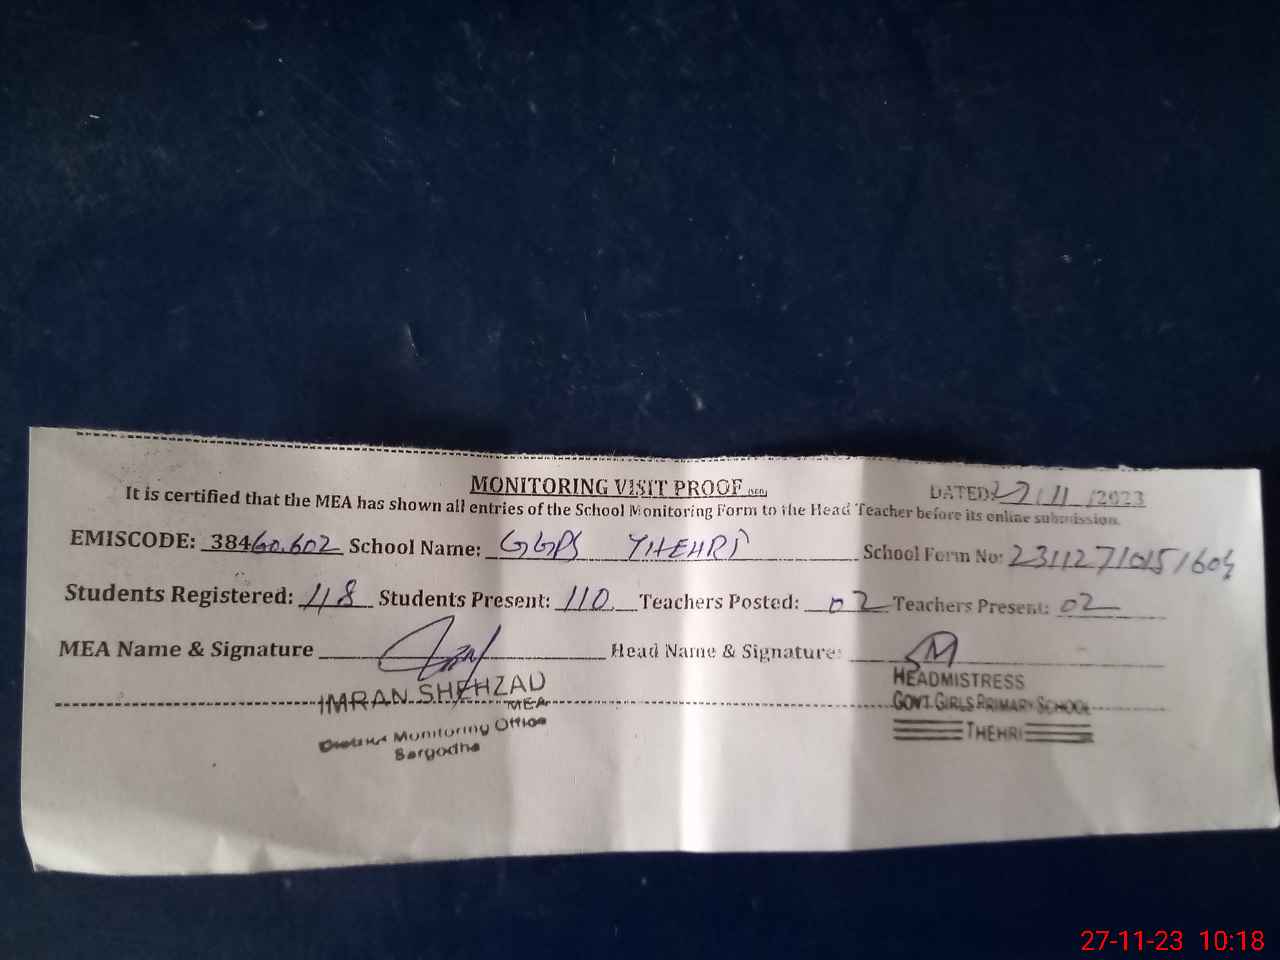 MONITORING VISIT PROOF (SED)
DATED: 27/11/2023
It is certified that the MEA has shown all entries of the School Monitoring Form to the Head Teacher before its online submission.
EMISCODE: 38460602 School Name: GGPS THEHRI School Form No: 23112710151604
Students Registered: 118 Students Present: 110 Teachers Posted: 02 Teachers Present: 02
MEA Name & Signature Head Name & Signature:
IMRAN SHEHZAD
MEA
District Monitoring Office
Sargodha
HEADMISTRESS
GOVT. GIRLS PRIMARY SCHOOL
THEHRI
27-11-23 10:18